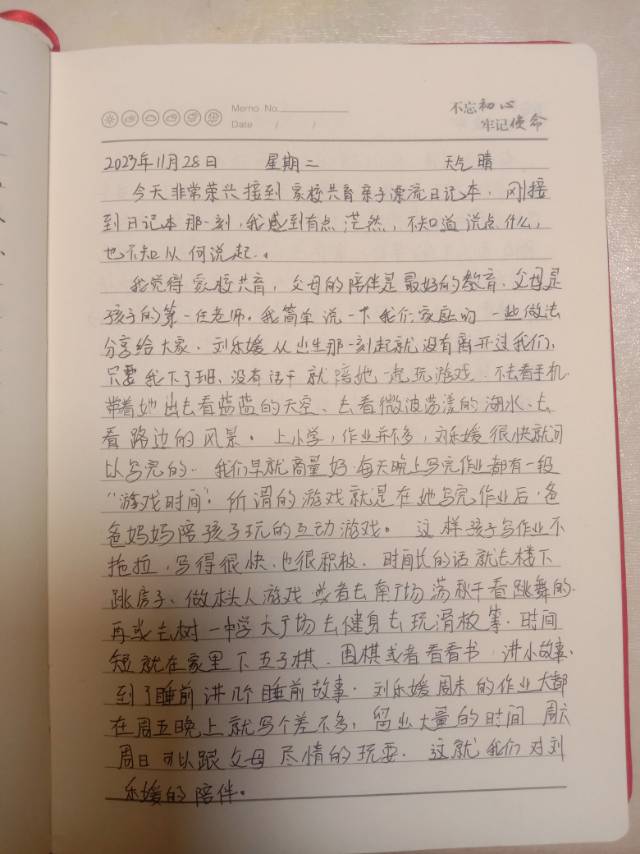 Memo No.
Date / /
不忘初心
牢记使命
2023年11月28日 星期二 天气 晴
今天非常荣兴接到家校共育亲子漂流日记本，刚接
到日记本那一刻，我感到有点茫然，不知道说点什么，
也不知从何说起。
我觉得家校共育，父母的陪伴是最好的教育．父母是
孩子的第一任老师。我简单说一下我们家庭的一些做法
分享给大家．刘乐媛从出生那一刻起就没有离开过我们，
只要我下了班，没有活干就陪她一起玩游戏．不去看手机
带着她出去看蓝蓝的天空、去看微波荡漾的湖水、去
看路边的风景。上小学，作业并不多，刘乐媛很快就可
以写完的．我们早就商量好．每天晚上写完作业都有一段
“游戏时间”．所谓的游戏就是在她写完作业后，爸
爸妈妈陪孩子玩的互动游戏。这样孩子写作业不
拖拉，写得很快，也很积极．时间长的话就去楼下
跳房子、做木头人游戏或者去南广场荡秋千看跳舞的．
再或去树一中学大广场去健身去玩滑板等．时间
短就在家里下五子棋．围棋或者看看书．讲小故事．
到了睡前讲几个睡前故事．刘乐媛周末的作业大都
在周五晚上就写个差不多，留出大量的时间周六
周日可以跟父母尽情的玩耍．这就我们对刘
乐媛的陪伴。